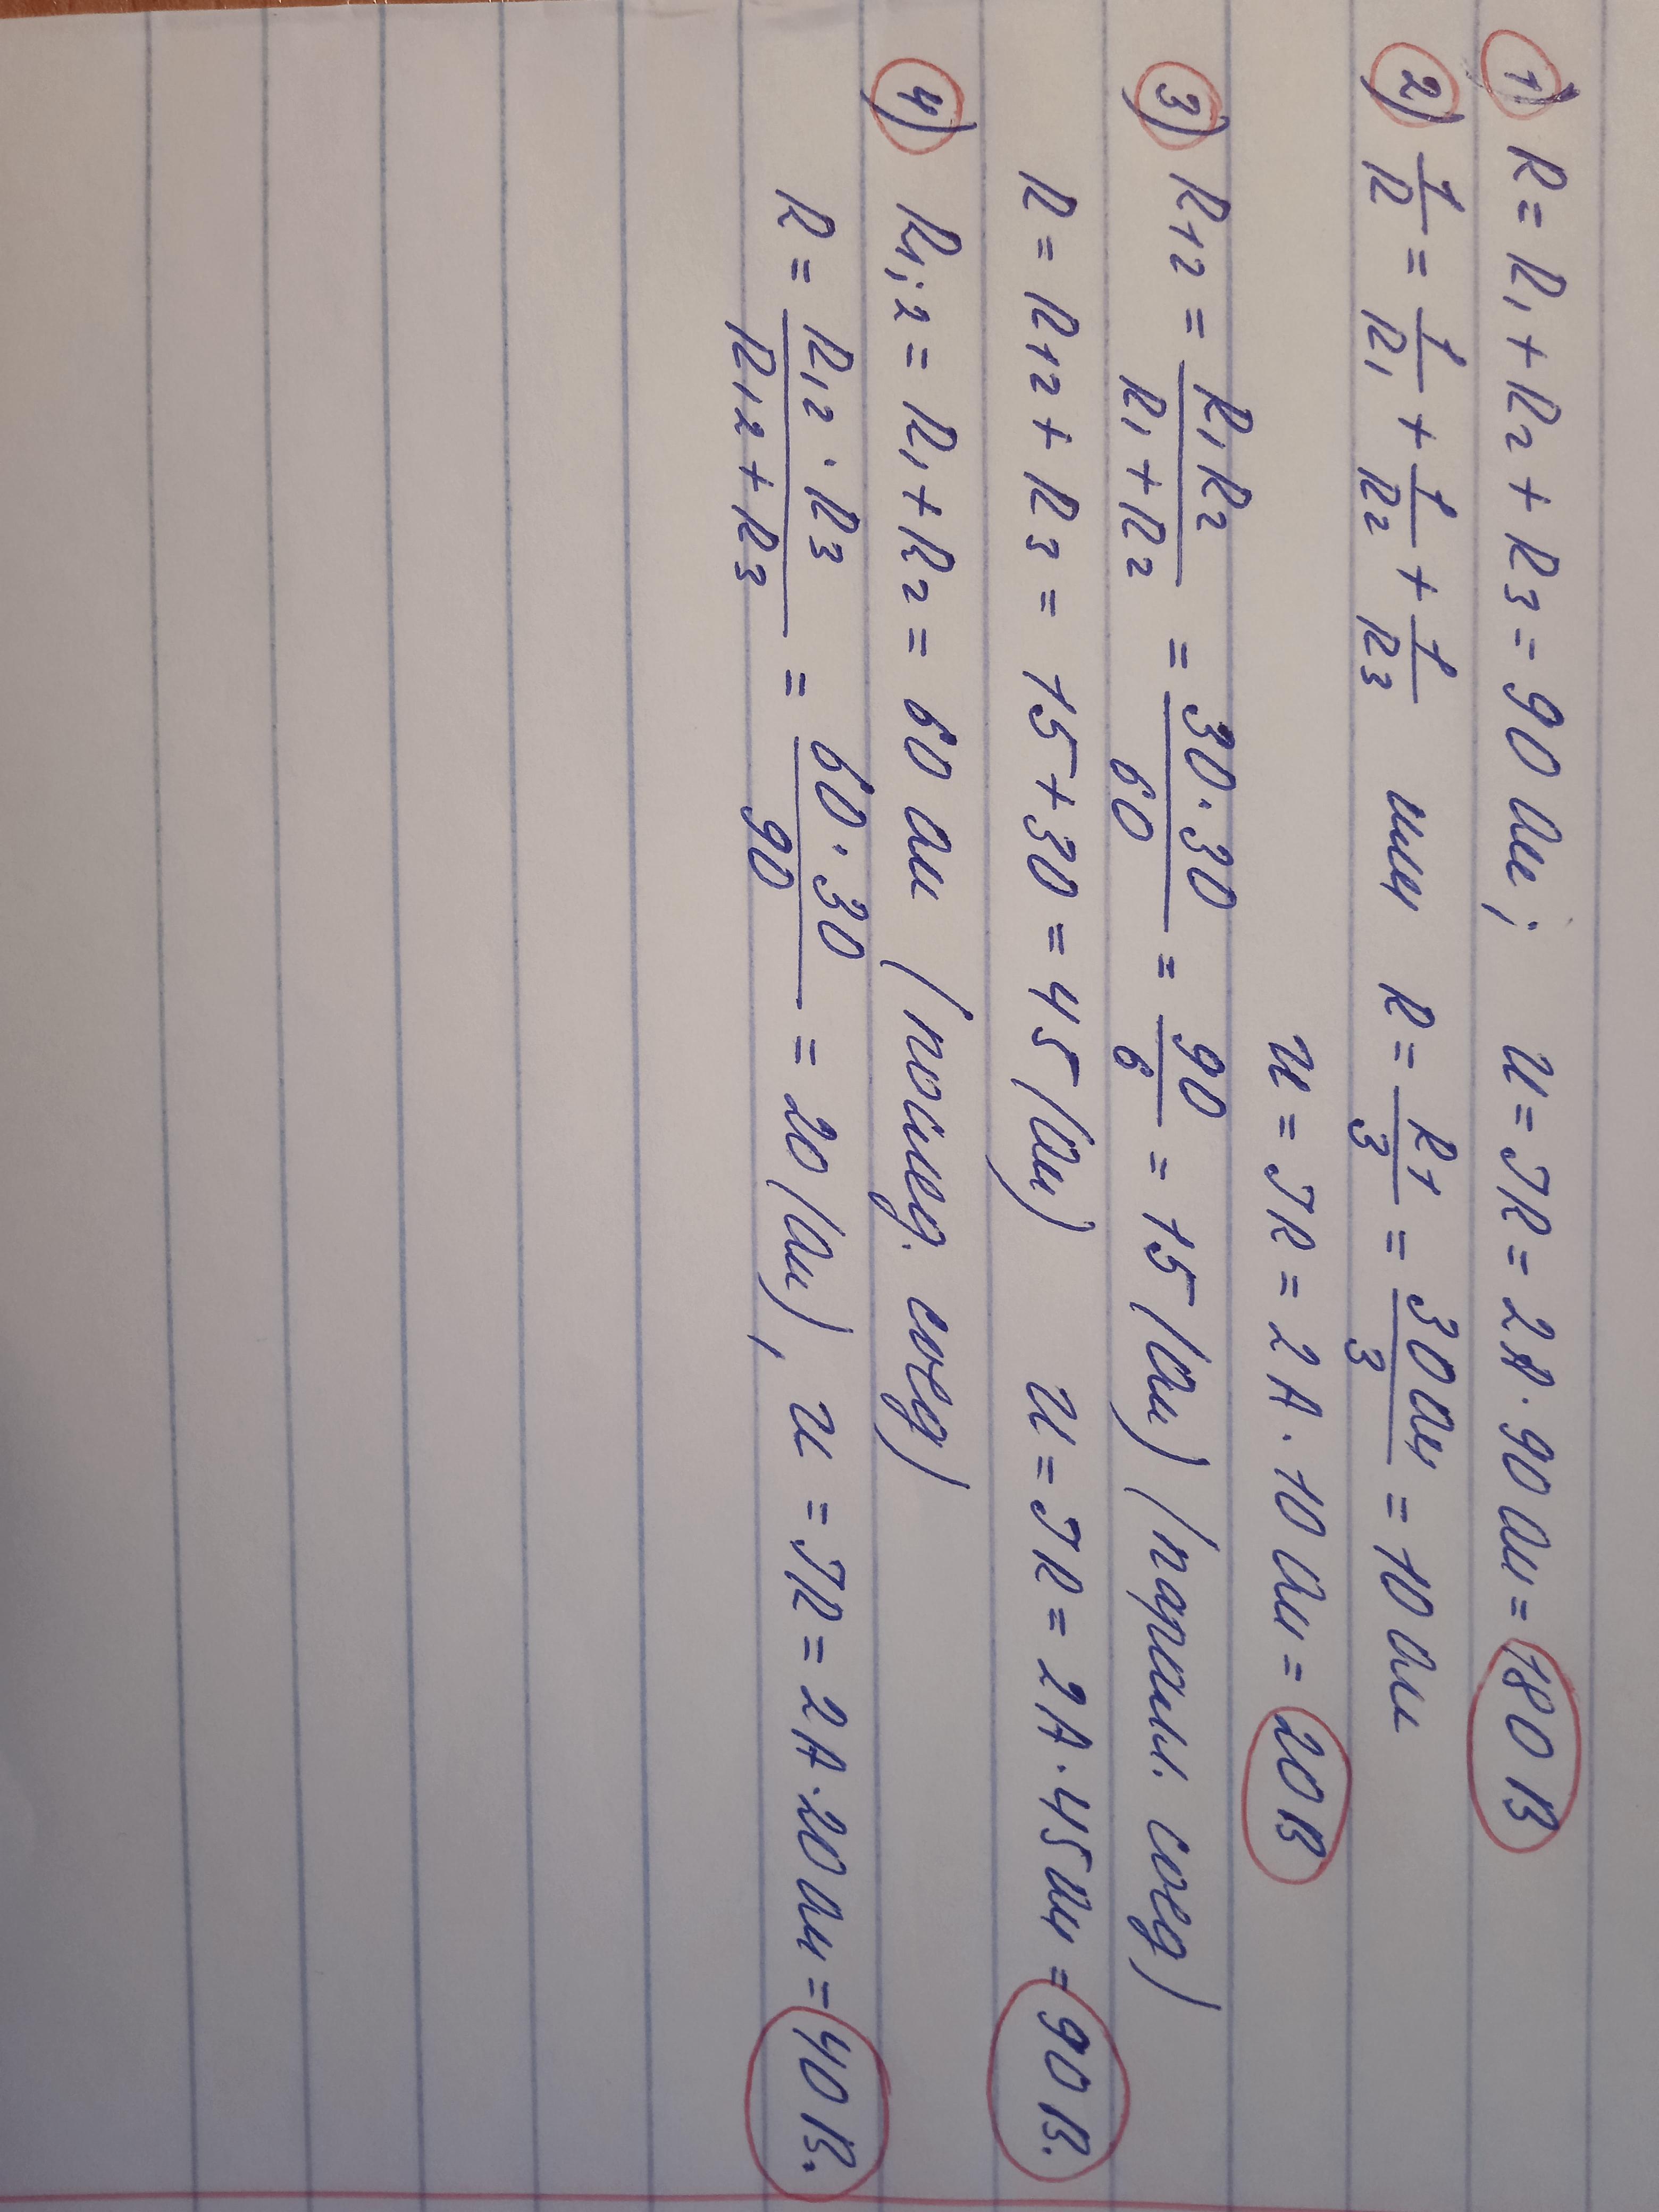 1) R = R₁ + R₂ + R₃ = 90 Ом; U = IR = 2А · 90 Ом = 180 В
2) 1/R = 1/R₁ + 1/R₂ + 1/R₃ или R = R₁/3 = 30 Ом/3 = 10 Ом
U = IR = 2 А · 10 Ом = 20 В
3) R₁₂ = R₁R₂/(R₁ + R₂) = 30·30/60 = 90/6 = 15 (Ом) (паралл. соед)
R = R₁₂ + R₃ = 15 + 30 = 45 (Ом) U = IR = 2А · 45 Ом = 90 В.
4) R₁;₂ = R₁ + R₂ = 60 Ом (послед. соед)
R = R₁₂ · R₃/(R₁₂ + R₃) = 60 · 30/90 = 20 (Ом), U = IR = 2А · 20 Ом = 40 В.